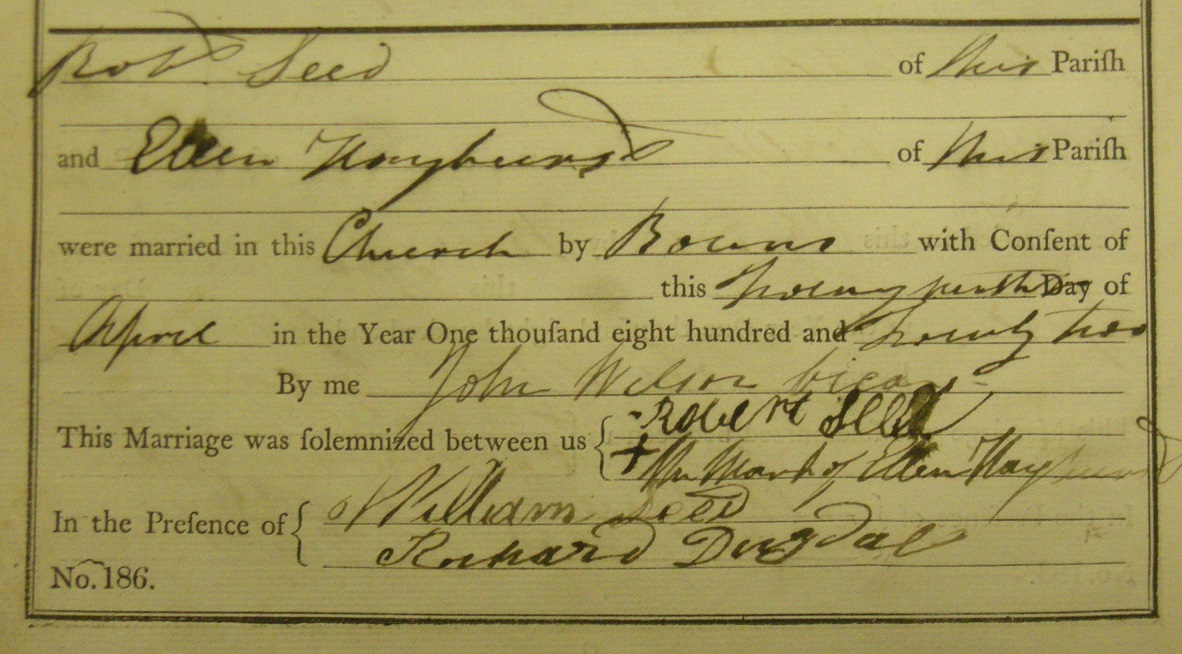 Robt. Seed of this Pariſh
and Ellen Hayhurst of this Pariſh
were married in this Church by Banns with Conſent of
this Twenty ninth Day of
April in the Year One thouſand eight hundred and Twenty two
By me John Wilson Vicar
This Marriage was ſolemnized between us { Robert Seed
+ The Mark of Ellen Hayhurst
In the Preſence of { William Seed
Richard Dugdale
No. 186.